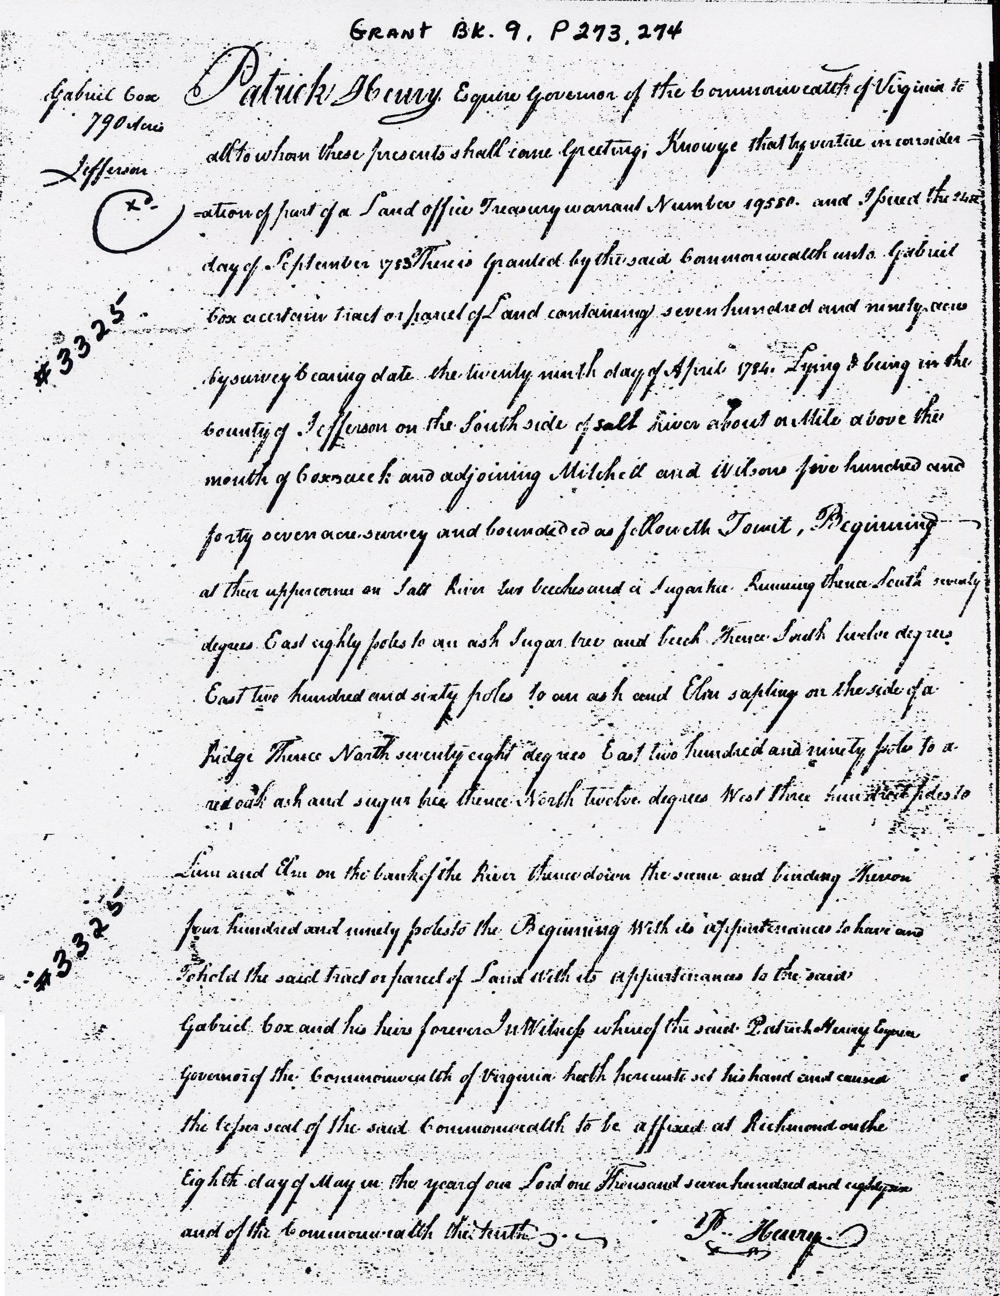 GRANT BK. 9, P 273, 274
Gabriel Cox
790 Acres
Jefferson
Xd.
#3325
Patrick Henry Esquire Governor of the Commonwealth of Virginia to
all to whom these presents shall come Greeting; Know ye that by virtue in consider
=ation of part of a Land office Treasury warrant Number 19580. and Issued the
day of September 1783 There is Granted by the said Commonwealth unto Gabriel
Cox a certain tract or parcel of Land containing seven hundred and ninety acres
by survey bearing date the twenty ninth day of April 1784. Lying & being in the
County of Jefferson on the South side of salt River about a Mile above the
mouth of Coxs creek and adjoining Mitchell and Wilsons five hundred and
forty seven acre survey and bounded as followeth Towit, Beginning
at their upper corner on Salt River two beeches and a Sugar tree Running thence South seventy
degrees East eighty poles to an ash Sugar tree and beech Thence South twelve degrees
East two hundred and sixty poles to an ash and Elm sapling on the side of a
Ridge Thence North seventy eight degrees East two hundred and ninety poles to a
red oak ash and sugar tree thence North twelve degrees West three hundred poles to
#3325
Linn and Elm on the bank of the River thence down the same and binding Thereon
four hundred and ninety poles to the Beginning With its appurtenances to have and
To hold the said tract or parcel of Land with its appurtenances to the said
Gabriel Cox and his heirs forever In Witness whereof the said Patrick Henry Esquire
Governor of the Commonwealth of Virginia hath hereunto set his hand and caused
the lesser seal of the said Commonwealth to be affixed at Richmond on the
Eighth day of May in the year of our Lord one Thousand seven hundred and eighty six
and of the Commonwealth the tenth
P. Henry